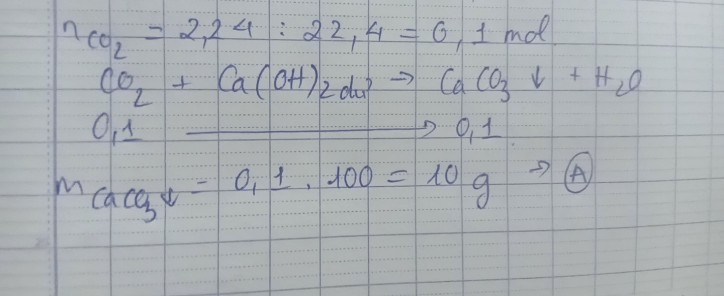 nCO₂ = 2,24 : 22,4 = 0,1 mol
CO₂ + Ca(OH)₂ dư → CaCO₃ ↓ + H₂O
0,1 → 0,1
mCaCO₃↓ = 0,1 . 100 = 10 g → Ⓐ